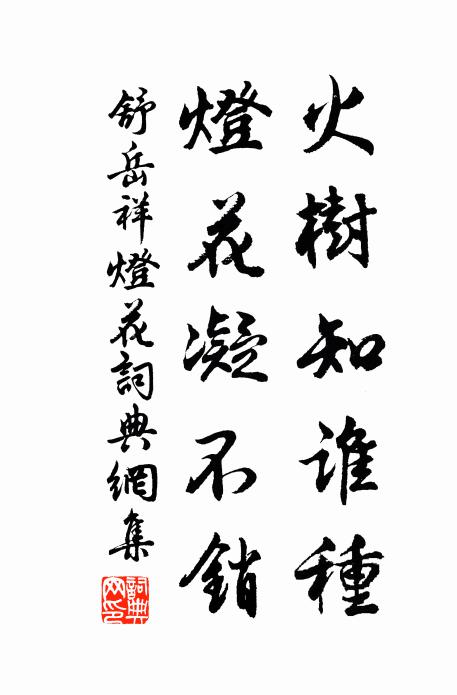 火樹知誰種
燈花凝不銷
舒岳祥燈花詞典網集
詞典網印